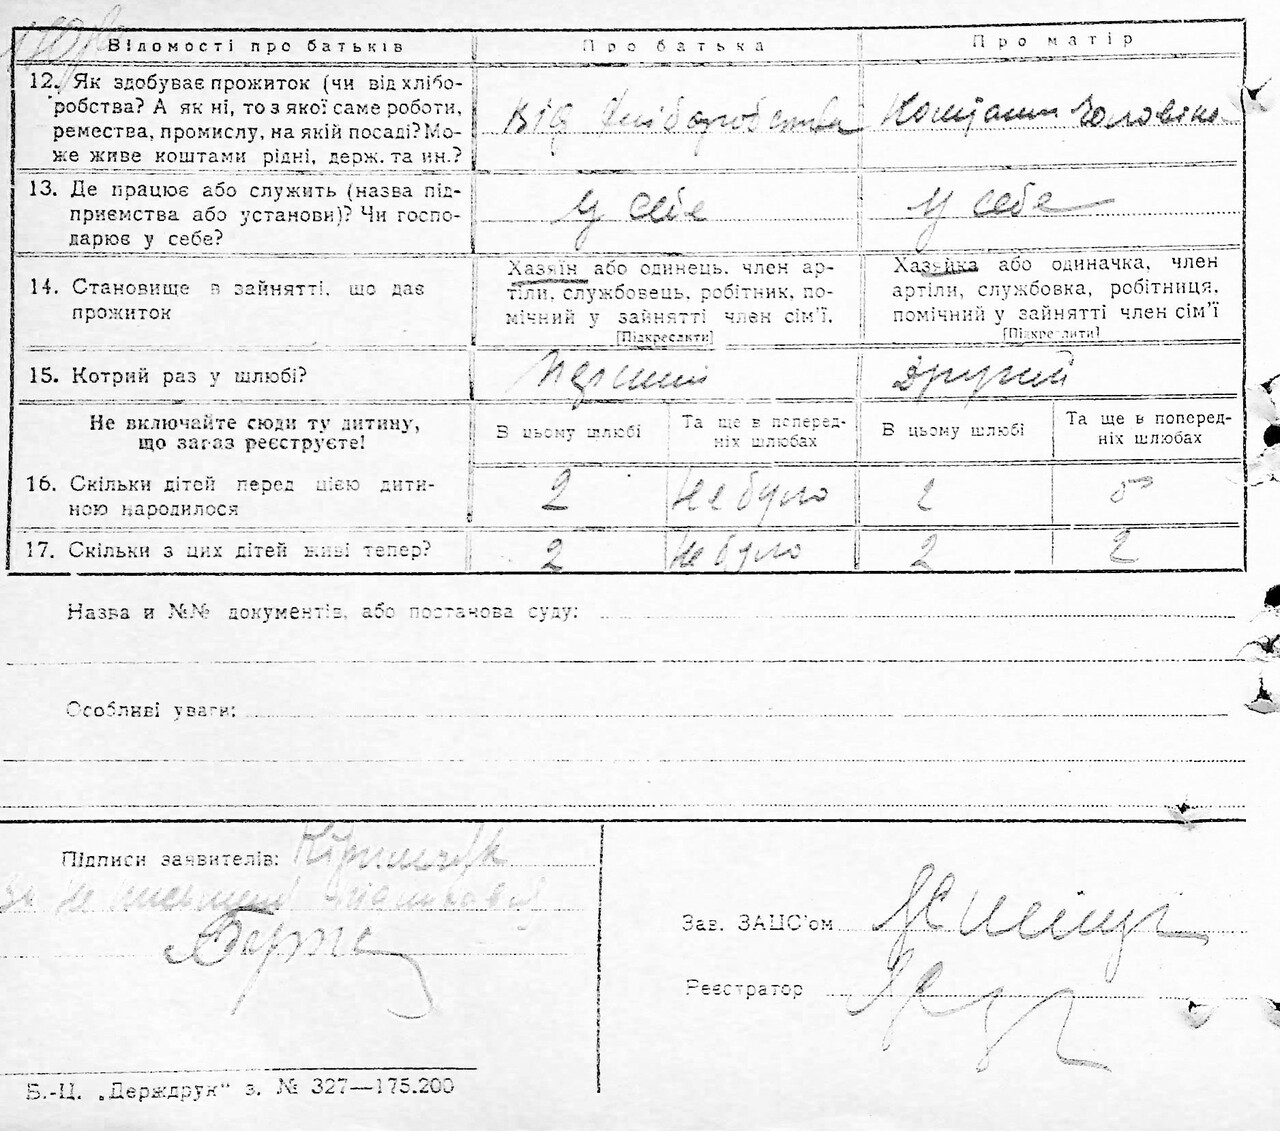 Відомості про батьків
Про батька
Про матір
12. Як здобуває прожиток (чи від хлібо-
робства? А як ні, то з якої саме роботи,
ремества, промислу, на якій посаді? Мо-
же живе коштами рідні, держ. та ин.?
Від хліборобства
Коштами чоловіка
13. Де працює або служить (назва під-
приємства або установи)? Чи госпо-
дарює у себе?
У себе
У себе
14. Становище в зайнятті, що дає
прожиток
Хазяїн або одинець, член ар-
тіли, службовець, робітник, по-
мічний у зайнятті член сім'ї.
[Підкреслити]
Хазяйка або одиначка, член
артіли, службовка, робітниця,
помічний у зайнятті член сім'ї
[Підкреслити]
15. Котрий раз у шлюбі?
Перший
Другий
Не включайте сюди ту дитину,
що зараз реєструєте!
В цьому шлюбі
Та ще в поперед-
ніх шлюбах
В цьому шлюбі
Та ще в поперед-
ніх шлюбах
16. Скільки дітей перед цією дити-
ною народилося
2
Не було
2
5
17. Скільки з цих дітей живі тепер?
2
Не було
2
2
Назва и №№ документів, або постанова суду:
Особливі уваги:
Підписи заявителів:
Зав. ЗАЦС'ом
Реєстратор
Б.-Ц. „Держдрук" з. № 327—175.200